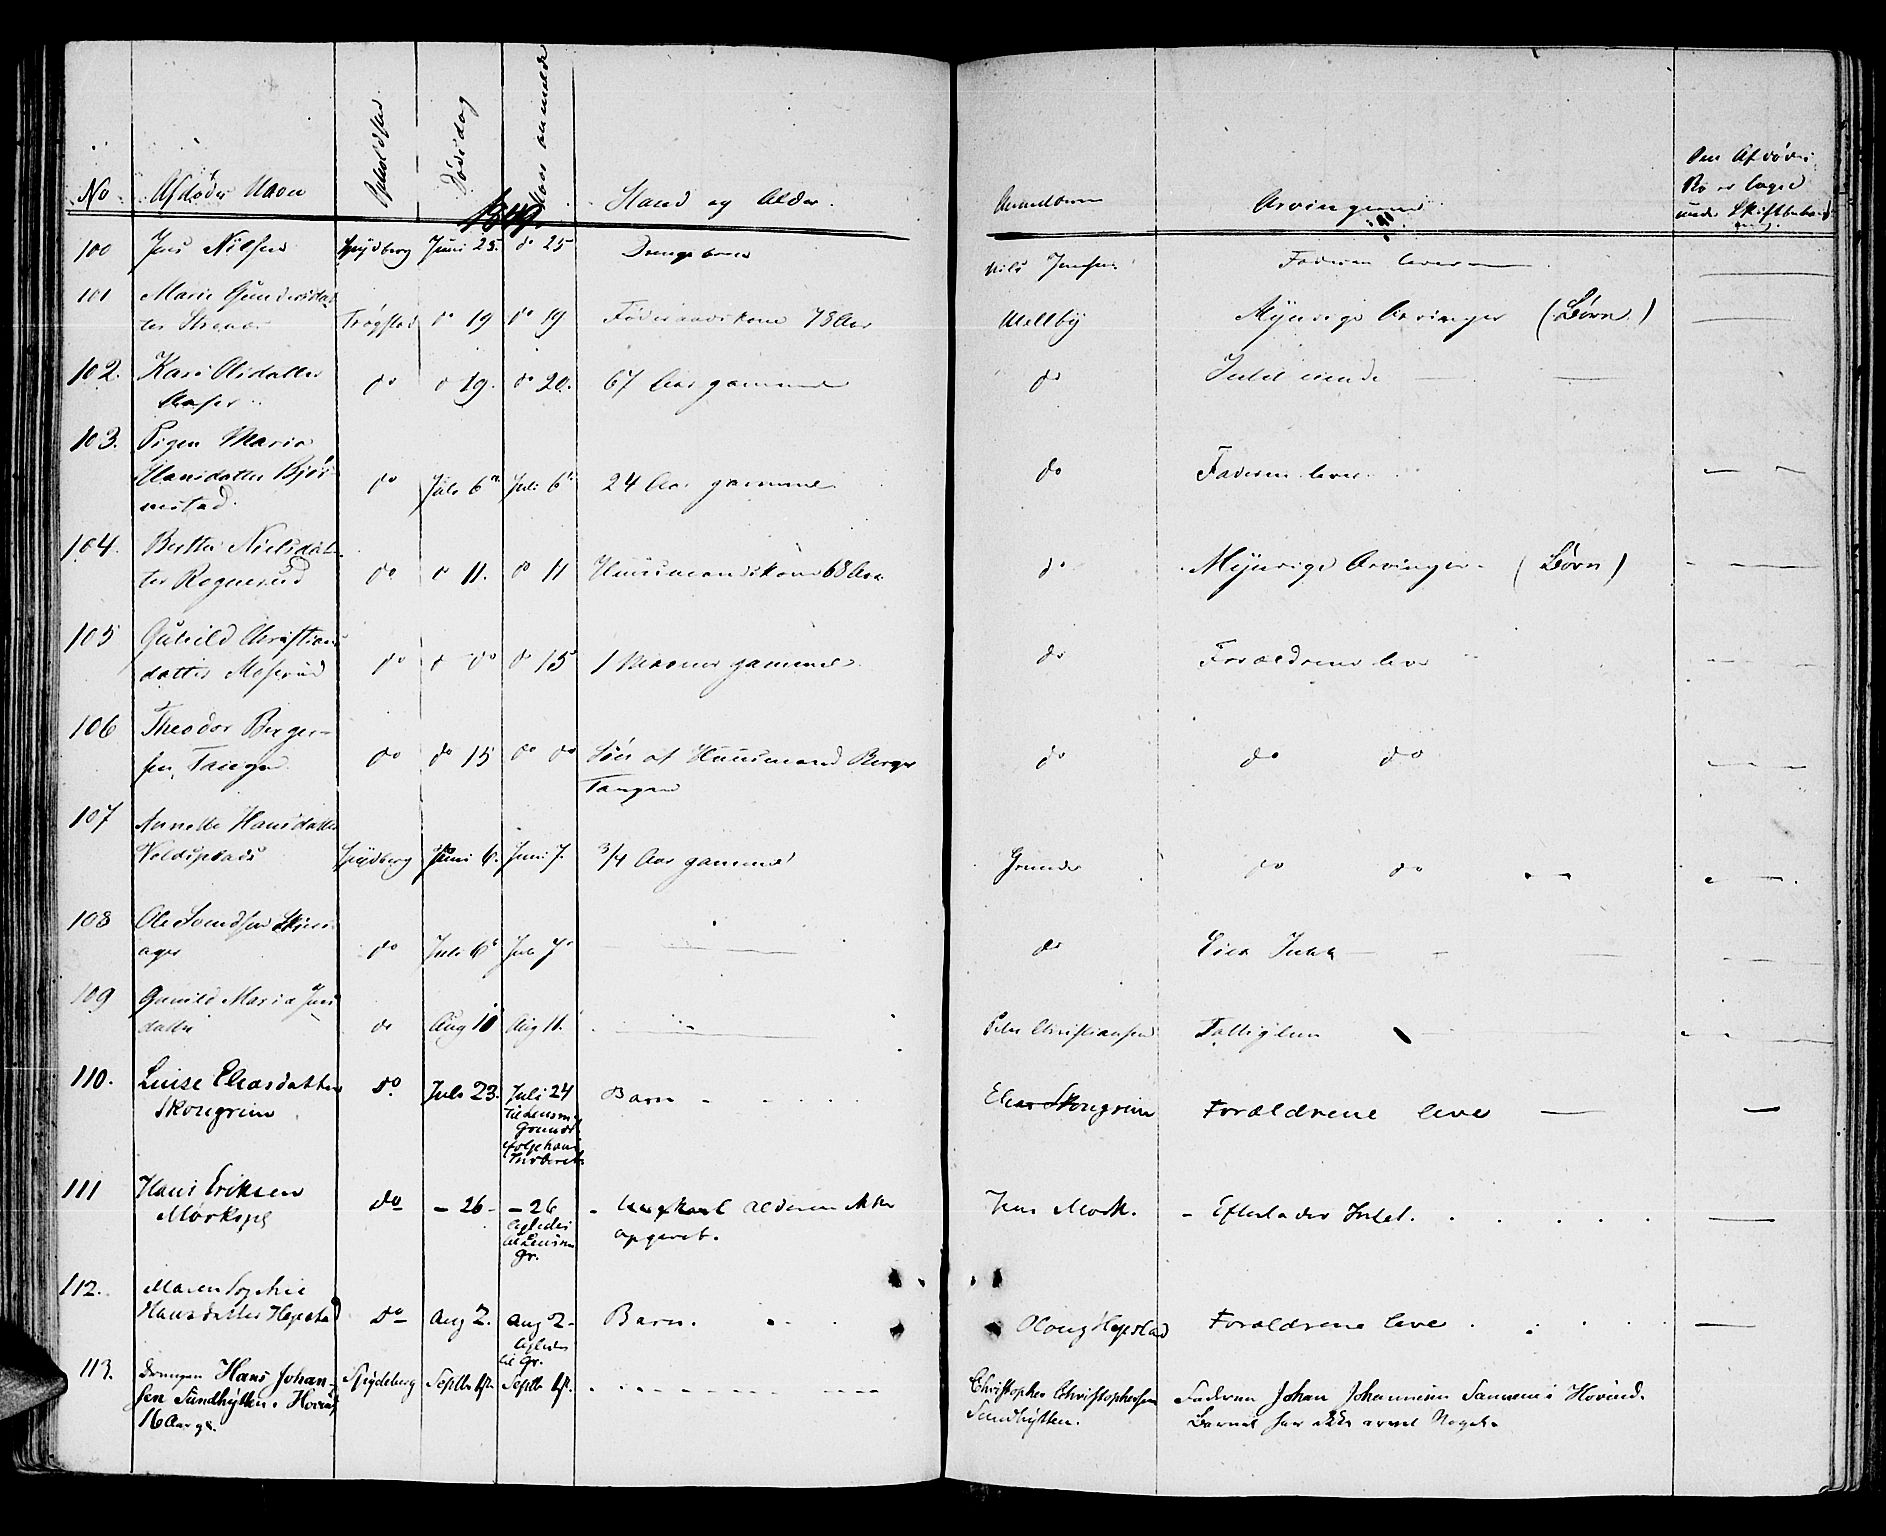 No. Afdødes Navn Opholdsted Dødsdag Naar anmeldt Stand og Alder. Anmelderen Arvingerne Den Afdødes
Bo er taget
under Skiftebeh
1849.
100 Jens Nilsen Spydberg Juni 25. do 25 Drengebarn Nils Jensen Faderen lever
101 Marie Gundersdat-
ter Trøgstad do 19 do 19 Føderaadskone 78 Aar Mellby Myndige Arvinger (Børn)
102. Kari Olsdatter
do do 19. do 20. 67 Aar gammel do Intet eiende
103. Pigen Maria
Hansdatter Bjør-
nestad. do Juli 6 Juli 6 24 Aar gammel do Faderen lever
104. Berthe Nielsdat-
ter Rognerud do do 11. do 11 Huusmandskone 68 Aar do Myndige Arvinger (Børn)
105 Gunild Christians
datter Moserud do do do do 15 1 Maaned gammel do Forældrene leve
106 Theodor Berger-
sen Tangen do do 15 do do Søn af Huusmand Berger
Tangen do do do
107 Annette Hansdatter
Voldsplads Spydberg Juni 6. Juni 7. 3/4 Aar gammel Grunder do do
108 Ole Svendsen
ager do Juli 6 Juli 7 do Eier Intet
109 Gunild Maria Jens
datter do Aug 10 Aug 11. Peder Christiansen Fattiglem
110. Luise Eliasdatter
Skongrim do. Juli 23. Juli 24
til Lensm.
Grunder
ifølge hans
Indberet. Barn Elias Skongrim Forældrene leve
111 Hans Eriksen
Mørkspl do - 26 - - 26
til Lensm
Gr. Ungkarl Alderen ikke
opgivet. Jens Mork. - Efterlader Intet.
112. Maren Sophie
Hansdatter do Aug 2. Aug 2 -
til Gr. Barn. Forældrene leve
113. Drengen Hans Johan-
sen Sundhytten i Hovind
16 Aar g. Spydeberg Septb 1st. Septb 1st. Christopher Christophersen
Sundhytten. Faderen Johan Johannesen Hovind.
Barnet har ikke arvet Noget.